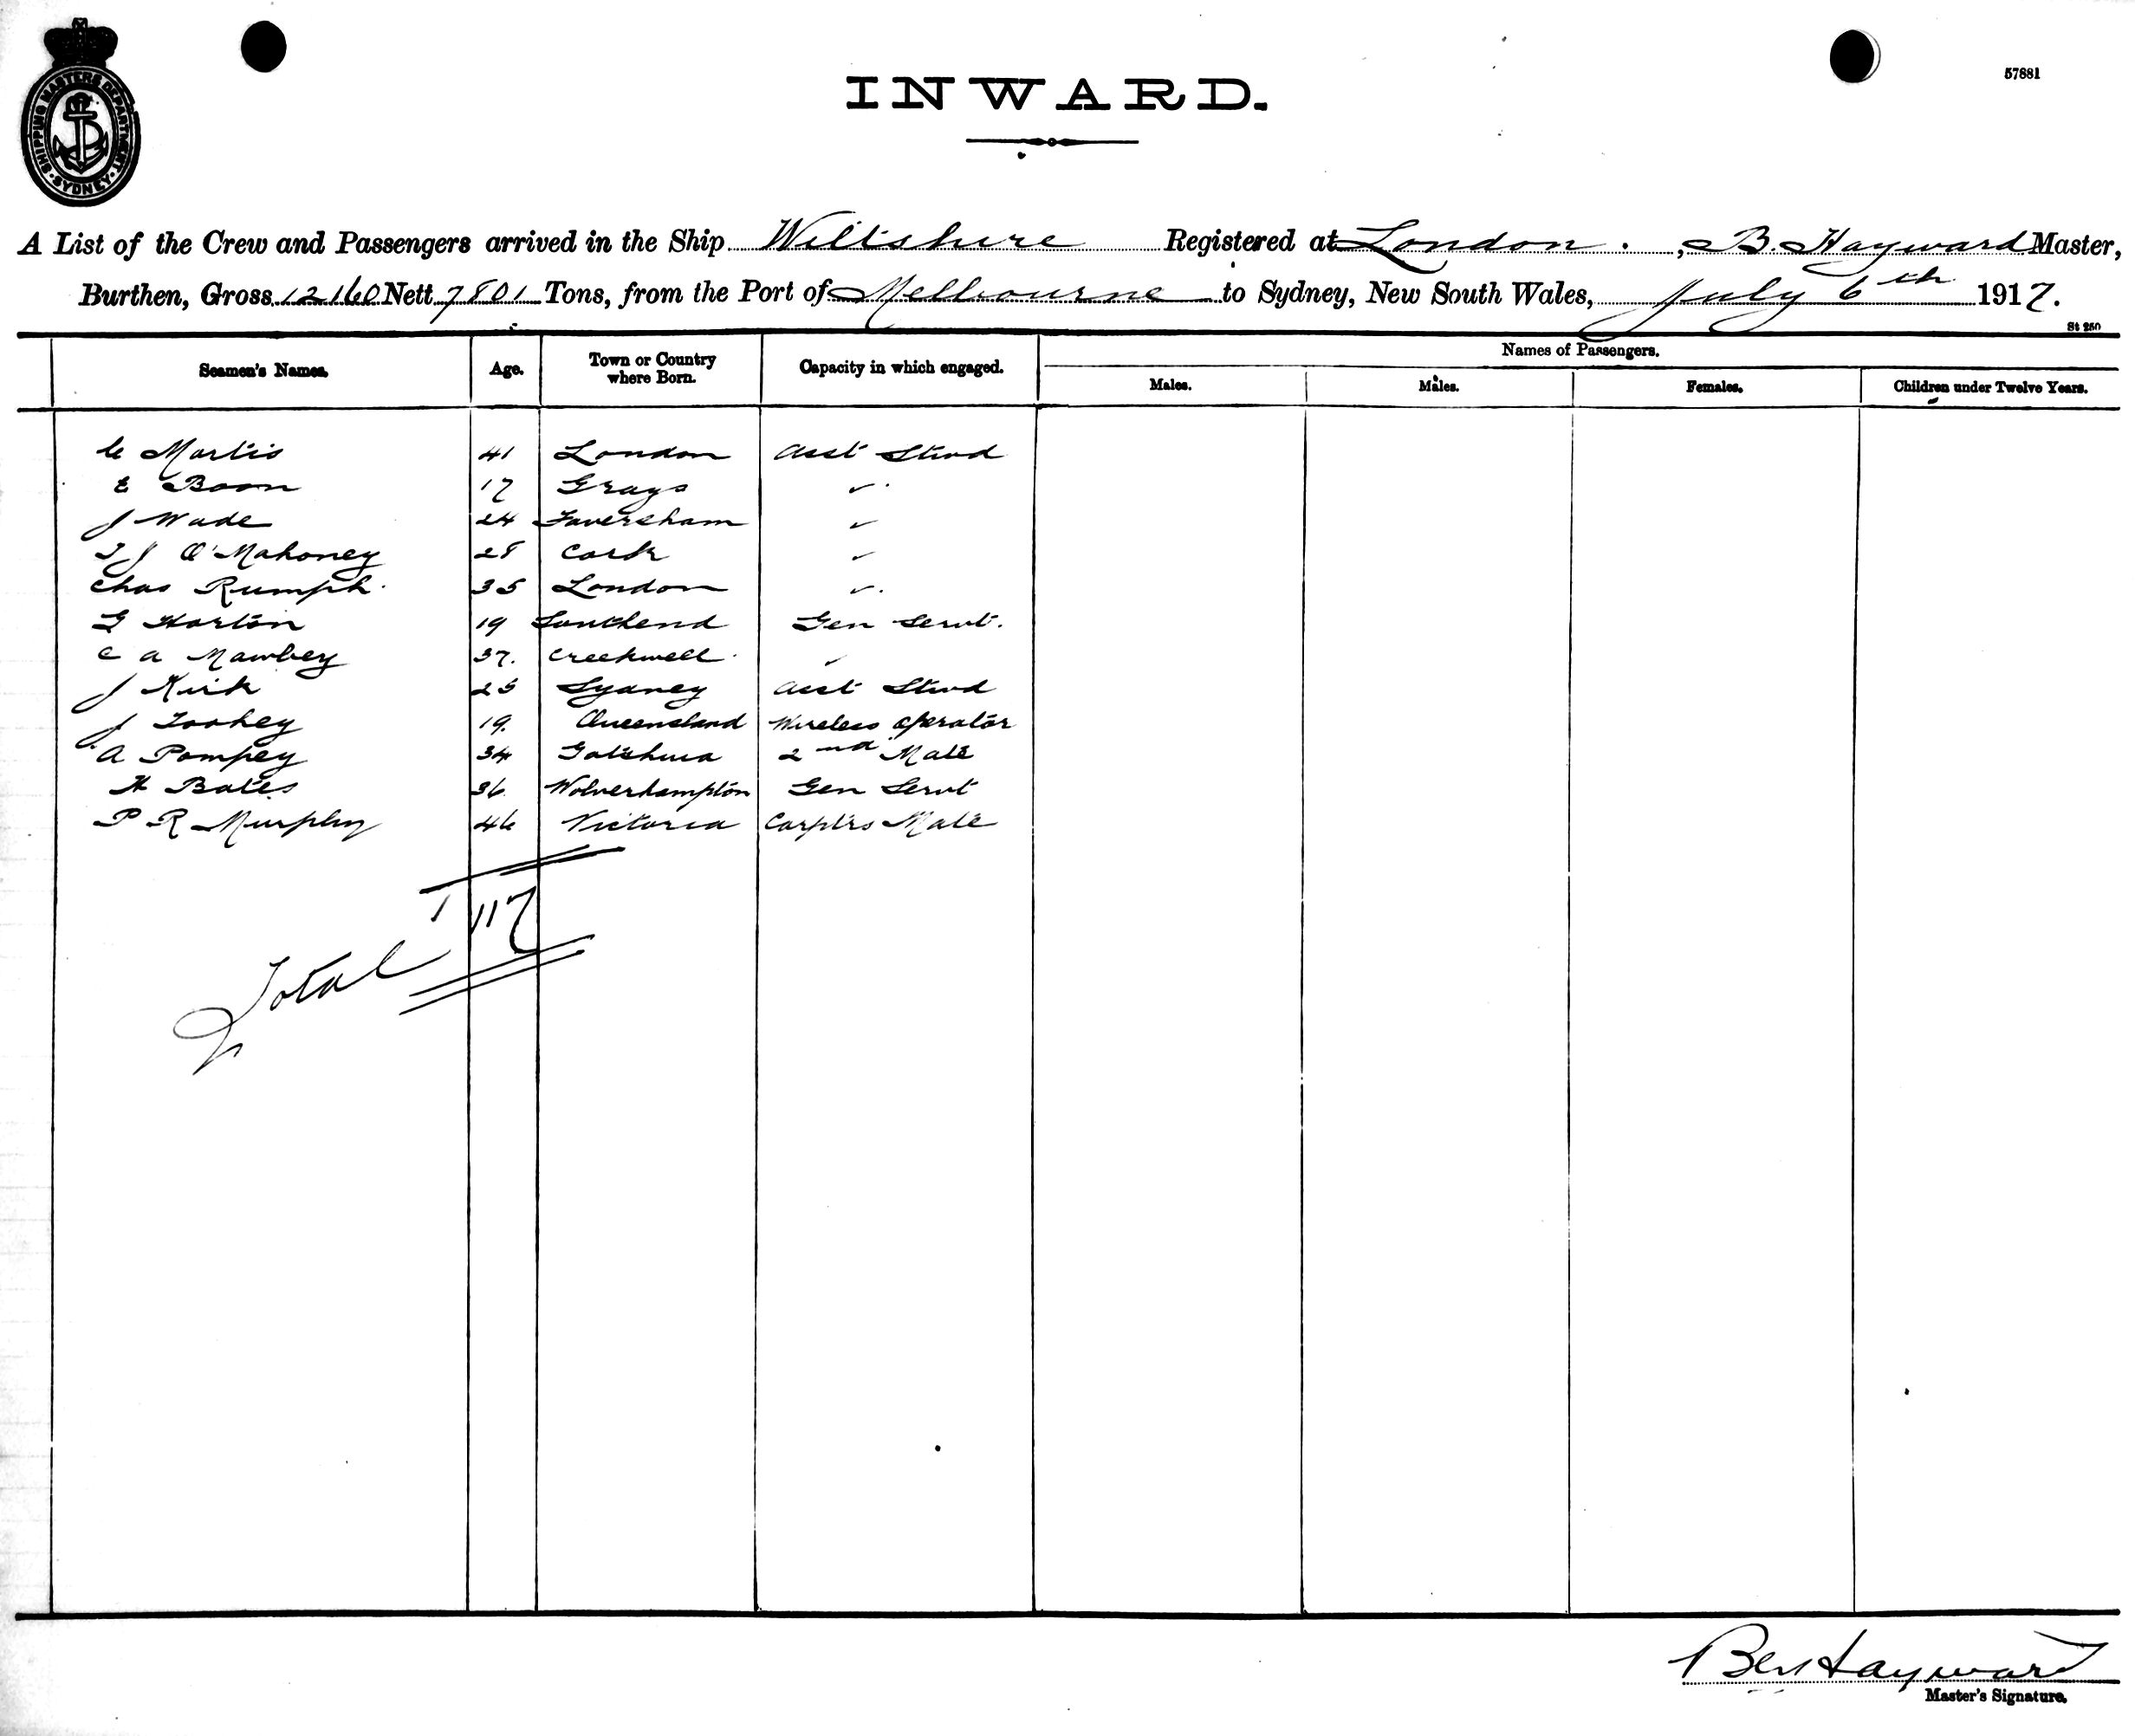 SHIPPING MASTERS DEPARTMENT
SYDNEY
57881
INWARD.
A List of the Crew and Passengers arrived in the Ship Wiltshire Registered at London, B. Hayward Master,
Burthen, Gross 12160 Nett 7801 Tons, from the Port of Melbourne to Sydney, New South Wales, July 6th 1917.
St 250
Seamen's Names. Age. Town or Country where Born. Capacity in which engaged. Names of Passengers.
Males. Males. Females. Children under Twelve Years.
C Martis 41 London Asst Stwd
E Boon 17 Grays ✓
J Wade 24 Faversham ✓
T J O'Mahoney 28 Cork ✓
Chas Rumph 35 London ✓
G Horton 19 Southend Gen Servt.
C A Mawbey 37. Creekwell ✓
J Kirk 25 Sydney Asst Stwd
J Toohey 19. Queensland Wireless Operator
A Pompey 34 2nd Mate
H Bates 36 Wolverhampton Gen Servt
P R Murphy 46 Victoria Carptrs Mate
Total 117
Ben Hayward
Master's Signature.